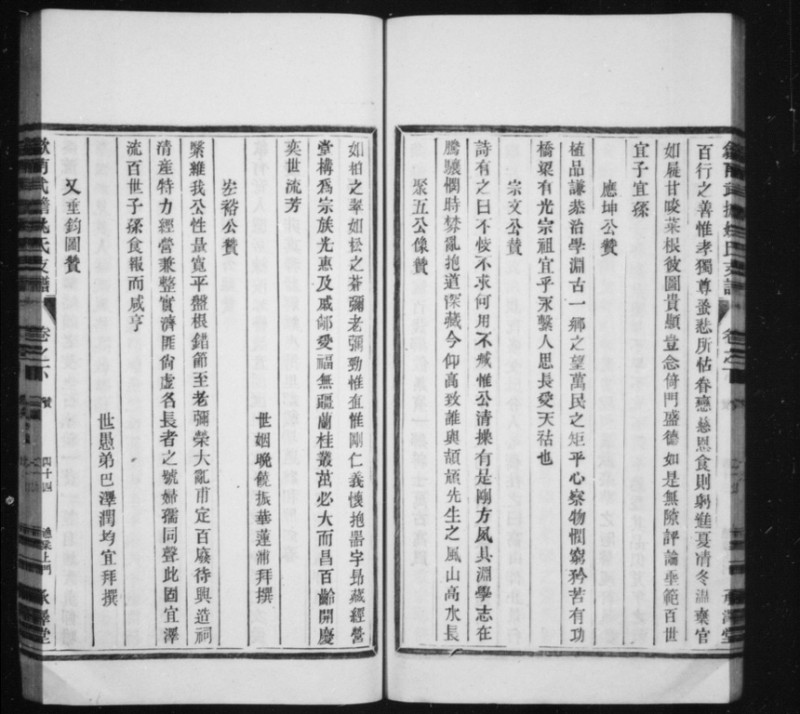 百行之善惟孝獨尊蚤悲所怙眷戀慈恩食則躬進夏凊冬溫棄官
如屣甘啖菜根彼圖貴顯豈念倚門盛德如是無隙評論垂範百世
宜子宜孫
應坤公贊
植品謙恭治學淵古一鄉之望萬民之矩平心察物憫窮矜苦有功
橋梁有光宗祖宜乎永繫人思長受天祜也
宗文公贊
詩有之曰不忮不求何用不臧惟公清操有是剛方夙具淵學志在
騰驤憫時棼亂抱道深藏今仰高致誰與頡頏先生之風山高水長
聚五公像贊
如柏之翠如松之蒼彌老彌勁惟直惟剛仁義懷抱器宇昂藏經營
堂構爲宗族光惠及戚鄰受福無疆蘭桂叢茁必大而昌百齡開慶
奕世流芳
世姻晚饒振華蓮浦拜撰
崇裕公贊
繄維我公性量寬平盤根錯節至老彌榮大亂甫定百廢待興造祠
清產特力經營兼整實濟匪尙虛名長者之號婦孺同聲此固宜澤
流百世子孫食報而咸亨
世愚弟巴澤潤均宜拜撰
又重鈞圖贊
卷之下
贊
四十四
承澤堂